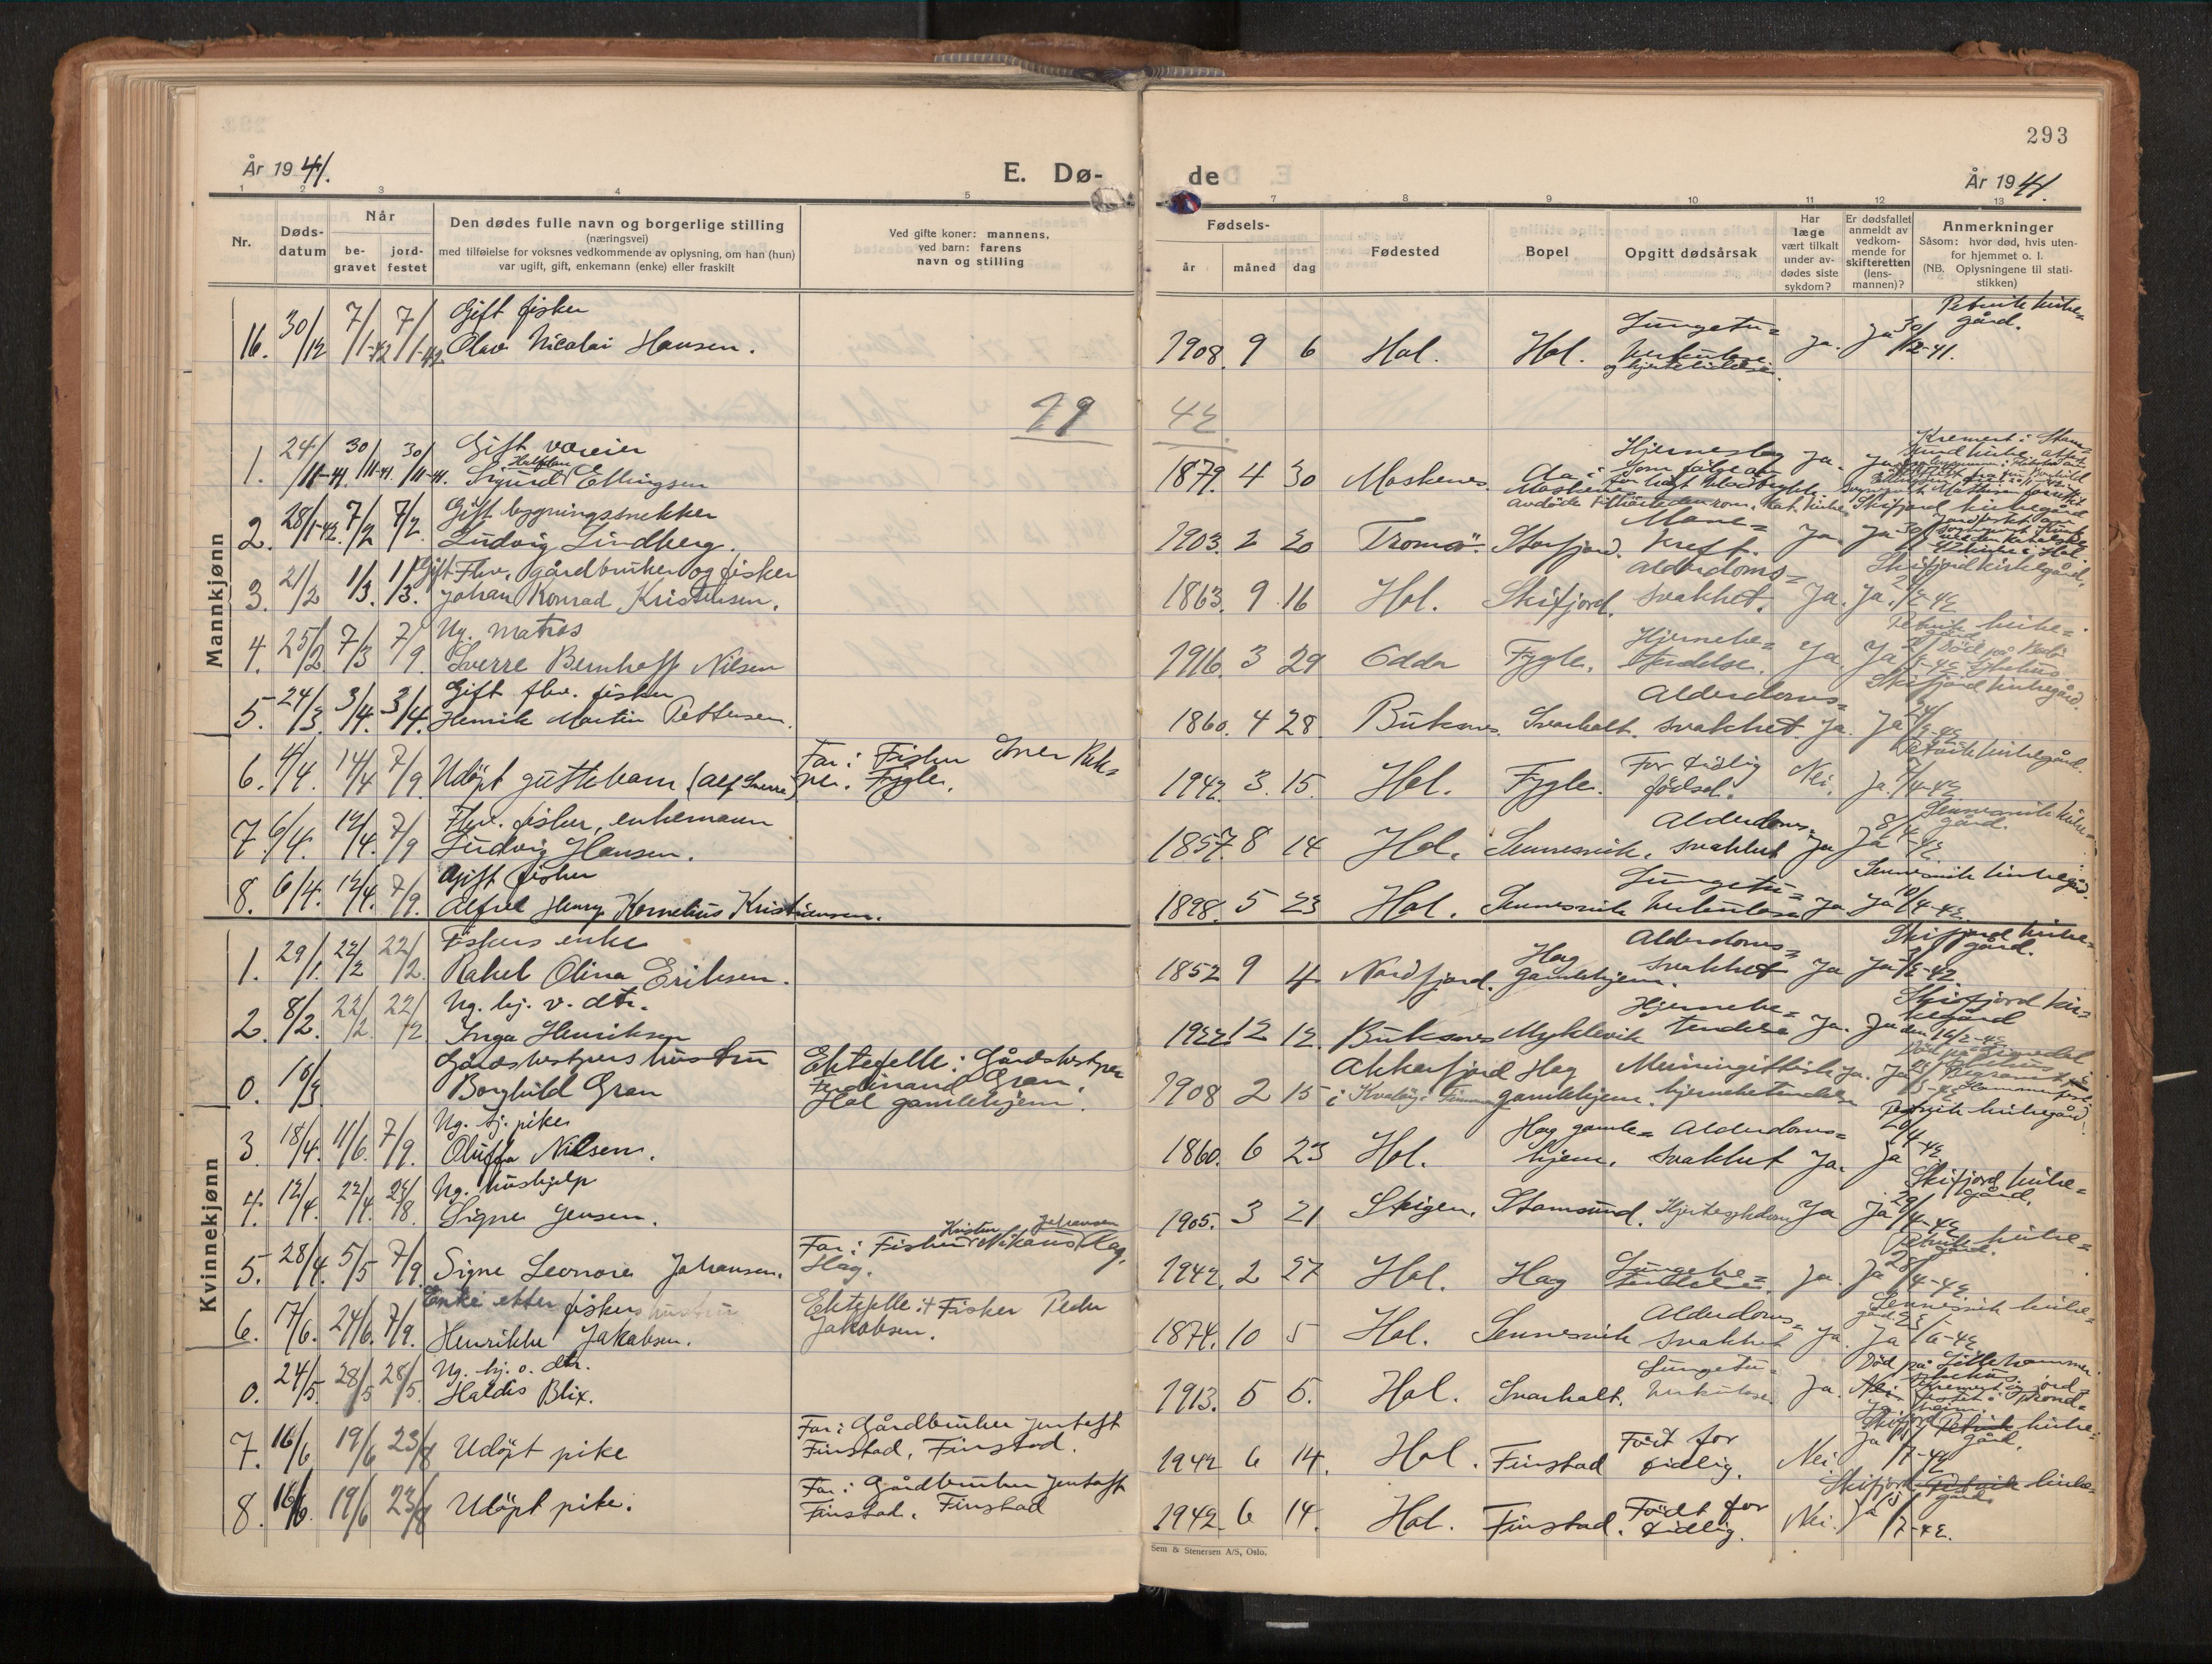 293
År 1941.
E. Dø-
de
År 1941.
1 2 3 4 5
7 8 9 10 11 12 13
Nr.
Døds-
datum
Når
be-
gravet
jord-
festet
Den dødes fulle navn og borgerlige stilling
(næringsvei)
med tilføielse for voksnes vedkommende av oplysning, om han (hun)
var ugift, gift, enkemann (enke) eller fraskilt
Ved gifte koner: mannens,
ved barn: farens
navn og stilling
Fødsels-
år måned dag
Fødested
Bopel
Opgitt dødsårsak
Har
læge
vært tilkalt
under av-
dødes siste
sykdom?
Er dødsfallet
anmeldt av
vedkom-
mende for
skifteretten
(lens-
mannen)?
Anmerkninger
Såsom: hvor død, hvis uten-
for hjemmet o. l.
(NB. Oplysningene til stati-
stikken)
Gift fisker
16. 30/12 7/1-42 7/1-42 Olav Nicolai Hansen.
1908. 9 6 Hol. Hol. Lungetu=
berkulose
og hjertelidelse.
ja. Ja 30/12-41.
Petvik kirke=
gård.
19 42
Mannkjønn
Gift væreier
1. 24/11-41. 30/11-41. 30/11-41. Sigurd Halfdan Ellingsen
1879. 4 30 Moskenes. Aa i
Moskenes
Hjerneslag
som følge av
for høit blodtrykk
ja. ja
Gift bygningssnekker
2. 28/1-42. 7/2 7/2. Ludvig Lindberg.
1903. 2 20 Tromsö. Storfjord. Mave=
kreft. Ja. Ja
Gift Fhv. gårdbruker og fisker
3. 21/2 1/3. 1/3. Johan Konrad Kristensen.
1863. 9 16 Hol. Skifjord. Alderdoms=
svakhet. Ja. Ja.
Skifjord kirkegård.
Ug. matros
4. 25/2 7/3 7/9. Sverre Bernhoff Nilsen
1916. 3 29 Odda Fygle. Hjernebe=
tendelse. Ja. Ja
Gift fhv. fisker
5. 24/3 3/4. 3/4. Henrik Martin Pettersen.
1860. 4 28. Buksnes. Svarholt. Alderdoms=
svakhet. Ja. Ja
Skifjord kirkegård.
6. 4/4. 14/4 7/9. Udöpt guttebarn (Alf Sverre)
Far: Fisker
Fygle.
1942. 3. 15. Hol. Fygle. For tidlig
födsel. Nei. Ja.
Petvik kirkegård.
Fhv. fisker, enkemann
7. 6/4. 14/4. 7/9 Ludvig Hansen.
1857. 8 14 Hol. Sennesvik. Alderdoms=
svakhet Ja Ja
8/4-42
Sennesvik kirke=
gård.
Gift fisker
8. 6/4. 14/4. 7/9. Alfred Henry Kornelius Kristiansen.
1898. 5 23 Hol. Sennesvik Lungetu=
berkulose Ja Ja 10/4-42.
Sennesvik kirkegård.
Kvinnekjønn
Fiskers enke
1. 29/1. 22/2 22/2. Rakel Olina Eriksen.
1852 9 4. Nordfjord. Hag
gamlehjem. Alderdoms=
svakhet Ja Ja
Skifjord kirke=
gård.
Ug. hj. v. dtr.
2. 8/2. 22/2. 22/2 Inga Henriksen
1922. 12 12. Buksnes Myklevik Hjernebe=
tendelse Ja. Ja
den 16/2-42
Skifjord kir=
kegård
Gårdsbestyrers hustru
0. 16/3 Borghild Gran
Ektefelle: Gårdsbestyrer
Ferdinand Gran.
Hol gamlehjem.
1908 2 15 Akkarfjord
i Kvalöy i Finnm. Hag
gamlehjem. Meiningittisk
hjernebetendelse ja. Ja
Ug. hj. pike
3 18/4. 11/6. 7/9. Oluffa Nilsen.
1860. 6 23 Hol. Hag gamle=
hjem. Alderdoms=
svakhet Ja. Ja 20/4-42
Petvik kirkegård.
Ug. hushjelp
4. 12/4. 22/4. 24/8. Signe Jensen.
1905. 3 21 Steigen. Stamsund. Hjertesykdom Ja Ja 29/4-42
Skifjord kirke=
gård.
5. 28/4. 5/5 7/9. Signe Leonora Johansen.
Far: Fisker Kristen Johansen
Hag.
1942. 2 27 Hol. Hag Lungebe=
tendelse. ja. Ja 28/4-42.
Petvik kirke=
gård.
Enke etter fisker
6. 17/6. 24/6. 7/9. Henrikke Jakobsen.
Ektefelle: + Fisker Peder
Jakobsen.
1874. 10 5 Hol. Sennesvik Alderdoms=
svakhet Ja. Ja 25/6-42
Sennesvik kirke=
gård.
Ug. hj. v. dtr.
0. 24/5. 28/5 28/5. Haldis Blix.
1913. 5 5. Hol. Svarholt. Lungetu=
berkulose Ja. Nei
Ja.
Død på Lillehammer
sykehus.
Kremert og jord=
festet i Trond=
heim.
7. 16/6 19/6 23/8 Udöpt pike
Far: Gårdbruker Jentoft
Finstad, Finstad.
1942 6 14. Hol. Finstad Födt for
tidlig. Nei. Ja 1/7-42
Skifjord Petvik kirke=
gård.
8. 16/6. 19/6 23/8 Udöpt pike.
Far: Gårdbruker Jentoft
Finstad, Finstad
1942 6 14. Hol. Finstad. Födt for
tidlig. Nei. Ja 1/7-42.
Skifjord Petvik kirke=
gård
Sem & Stenersen A/S, Oslo.